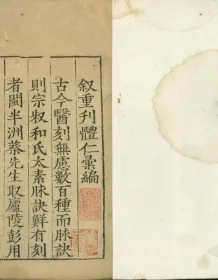 叙重刊體仁彙編
古今醫刻無慮數百種而脉訣
則宗叔和氏太素脉訣鮮有刻
者閩半洲蔡先生取廬陵彭用